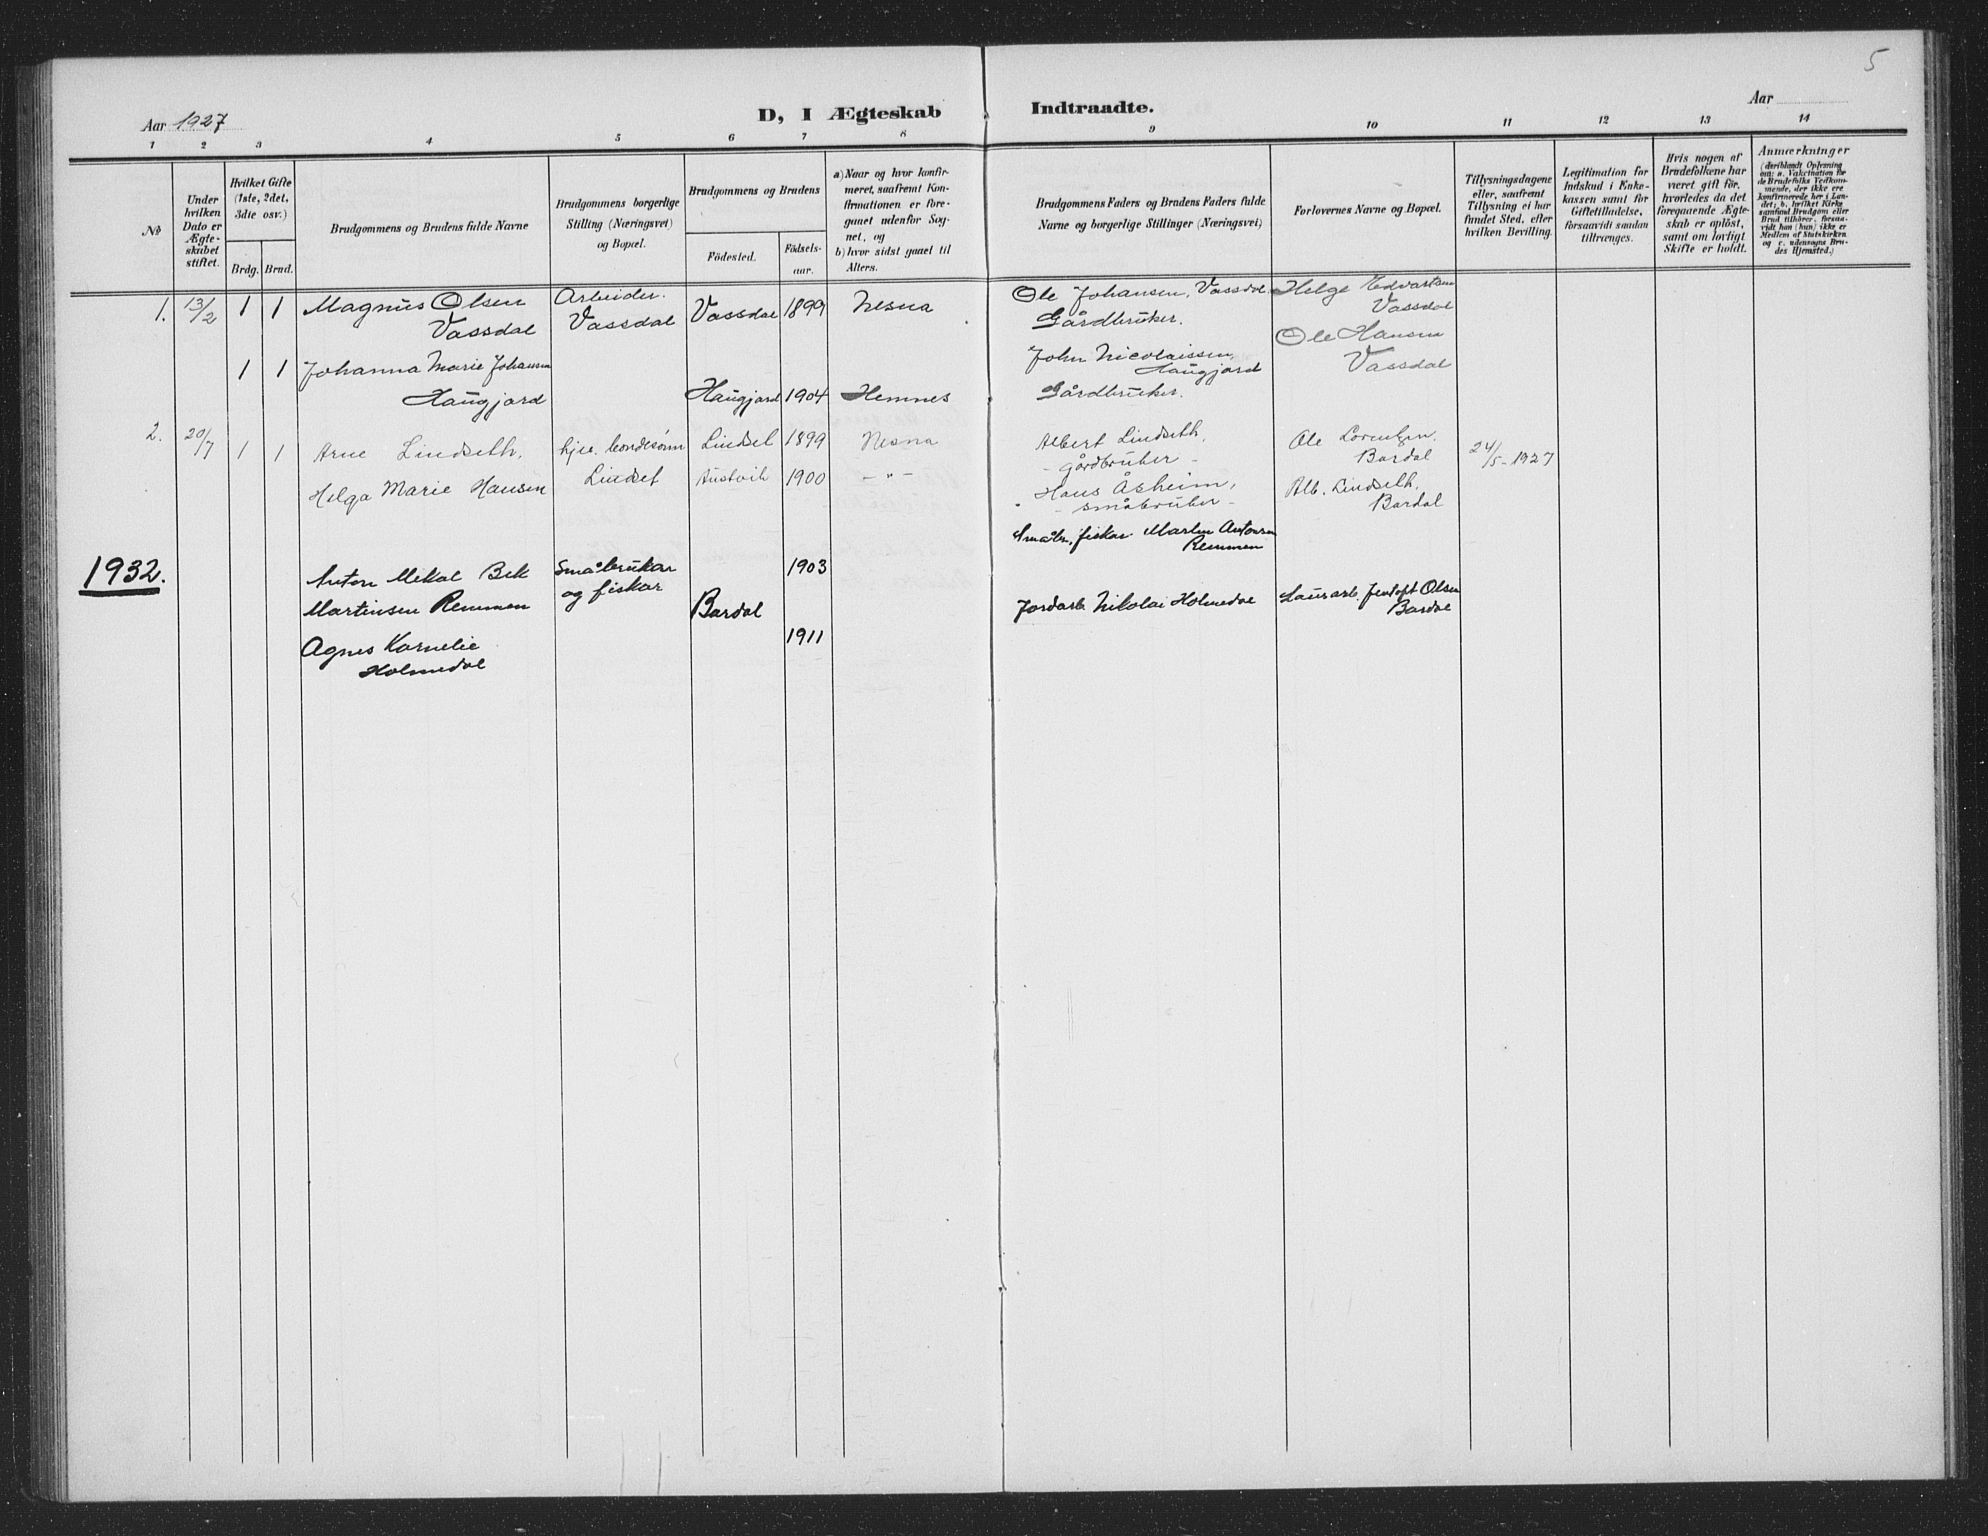 5
Aar 1927
D, I Ægteskab Indtraadte.
Aar
1 2 3 4 5 6 7 8 9 10 11 12 13 14
No
Under hvilken Dato er Ægteskabet stiftet.
Hvilket Gifte (1ste, 2det, 3die osv.)
Brdg. Brud.
Brudgommens og Brudens fulde Navne
Brudgommens borgerlige Stilling (Næringsvei) og Bopæl.
Brudgommens og Brudens
Födested. Födselsaar.
a) Naar og hvor konfirmeret, saafremt Konfirmationen er foregaaet udenfor Sognet, og
b) hvor sidst gaaet til Alters.
Brudgommens Faders og Brudens Faders fulde Navne og borgerlige Stillinger (Næringsvei)
Forlovernes Navne og Bopæl.
Tillysningsdagene eller, saafremt Tillysning ei har fundet Sted, efter hvilken Bevilling.
Legitimation for Indskud i Enkekassen samt for Giftetilladelse, forsaavidt saadan tiltrænges.
Hvis nogen af Brudefolkene har været gift för, hvorledes da det foregaaende Ægteskab er oplöst, samt om lovligt Skifte er holdt.
Anmærkninger
(deriblandt Oplysning om: a. Vakcination for de Brudefolks Vedkommende, der ikke ere konfirmerede her i Landet; b. hvilket Kirkesamfund Brudgom eller Brud tilhörer, forsaavidt han (hun) ikke er Medlem af Statskirken og c. udensogns Brudes Hjemsted.)
1. 13/2 1 1 Magnus Olsen Arbeider. Vassdal 1899 Nesna Ole Johansen, Vassdal Helge Edvartsen
Vassdal Vassdal Gårdbruker. Vassdal
Ole Hansen
1 1 Johanna Marie Johansen John Nicolaissen, Vassdal
Haugjord
Haugjord Haugjord 1904 Hemnes Gårdbruker.
2. 20/7 1 1 Arne Lindseth, hje. bondesønn Lindset 1899 Nesna Albert Lindseth, Ole Lorentzen. 24/5-1927
Lindset - gårdbruker - Bardal
Helga Marie Hansen Austvik 1900 - " - Hans Åsheim, Alb. Lindseth,
- småbruker - Bardal
Småbr., fiskar Martin Antonsen
Remmen
1932. Anton Mikal Bek Småbrukar 1903
og fiskar
Martinsen Remmen Bardal Jordarb. Nikolai Holmedal Olsen
Bardal
Agnes Kornelie 1911
Holmedal